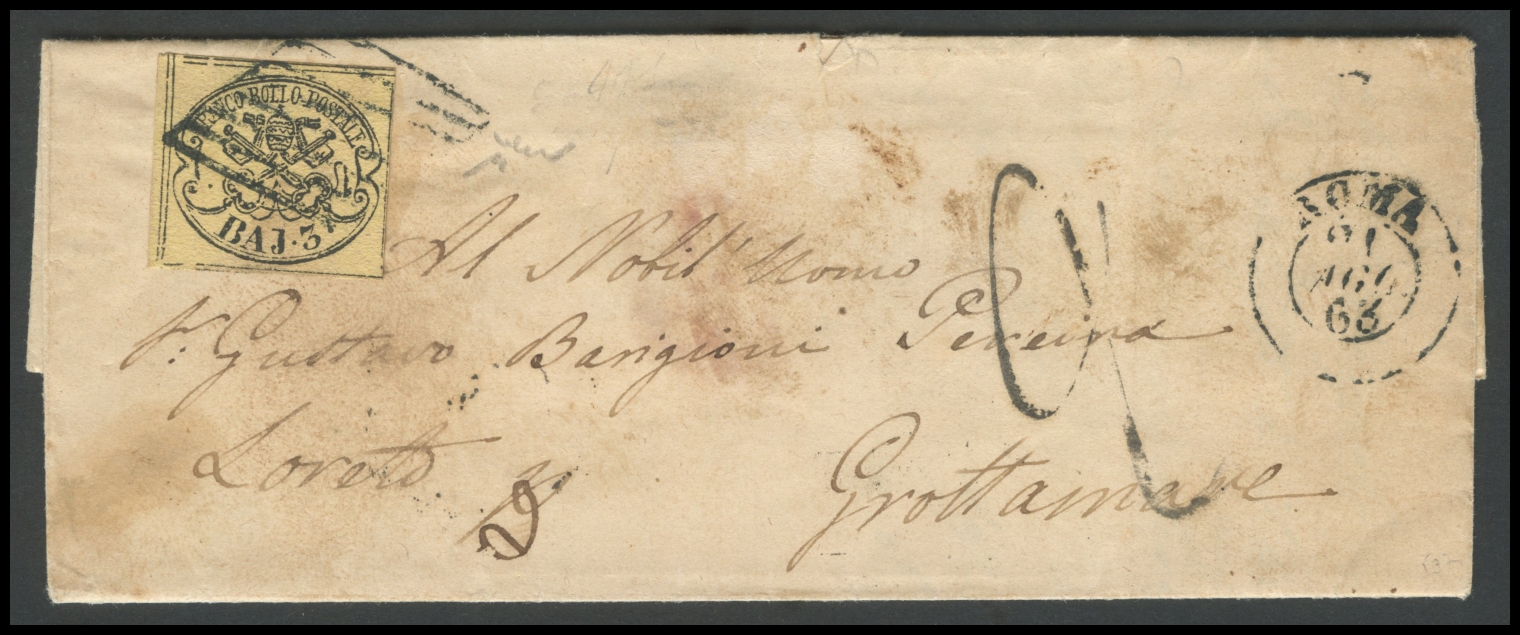 FRANCO BOLLO POSTALE
BAJ. 3
ROMA
21
AGO
63
Al Nobil' Uomo
Sr. Gustavo Barigioni Pereira
Loreto p
Grottamare